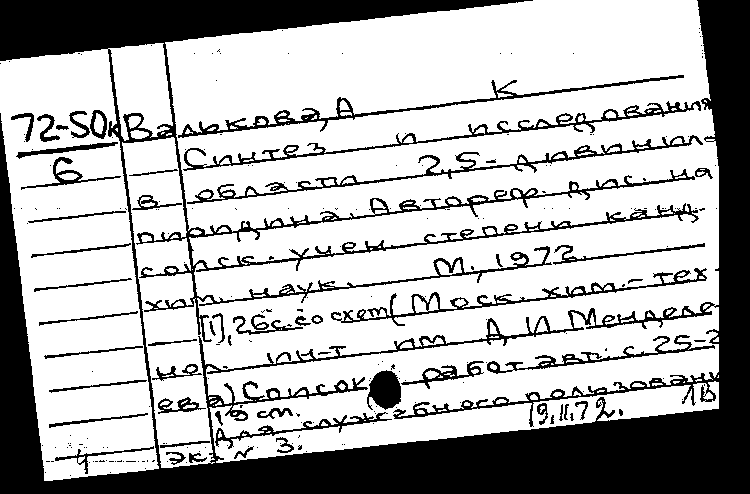 72-50к Валькова, А К
6
Синтез и исследования
в области 2,5-дивинил-
пиридина. Автореф. дис. на
соиск. учен. степени канд.
хим. наук. М., 1972.
[1], 26 с. со схем (Моск. хим.-тех-
нол. ин-т им Д И Менделе-
ева) Список работ авт: с. 25-2
(9 ст.
Для служебного пользовани
19.II.72. 1В
4 экз № 3.